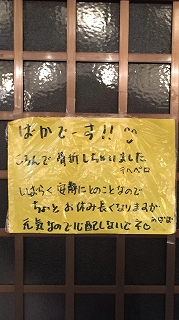 ばかでーす!!
ころんで骨折しちゃいました
テヘペロ
しばらく安静にとのことなので
ちょっとお休み長くなりますが
元気なので心配しないでネ